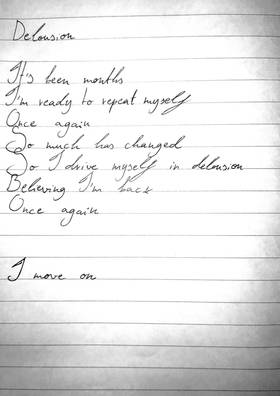 Delousion
It's been months
I'm ready to repeat myself
Once again
So much has changed
So I drive myself in delousion
Believing I'm back
Once again
I move on